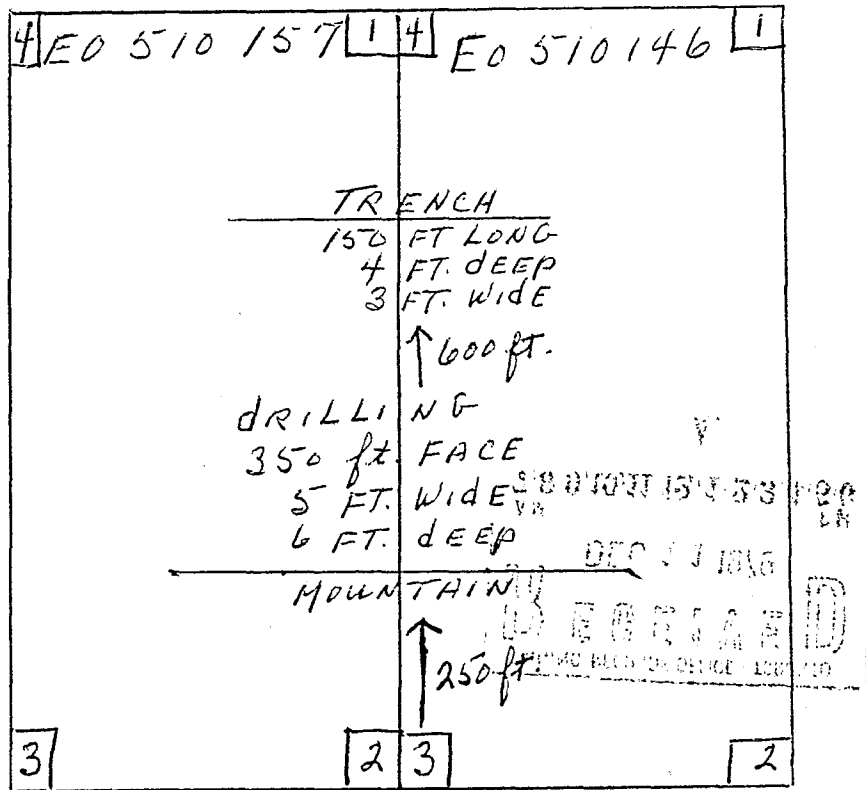 4 EO 510 157 1 4 EO 510146 1
TRENCH
150 FT LONG
4 FT. dEEP
3 FT. WidE
600 ft.
dRILLING
350 ft. FACE
5 FT. WidE
6 FT. dEEP
MOUNTAIN
250 ft
3 2 3 2